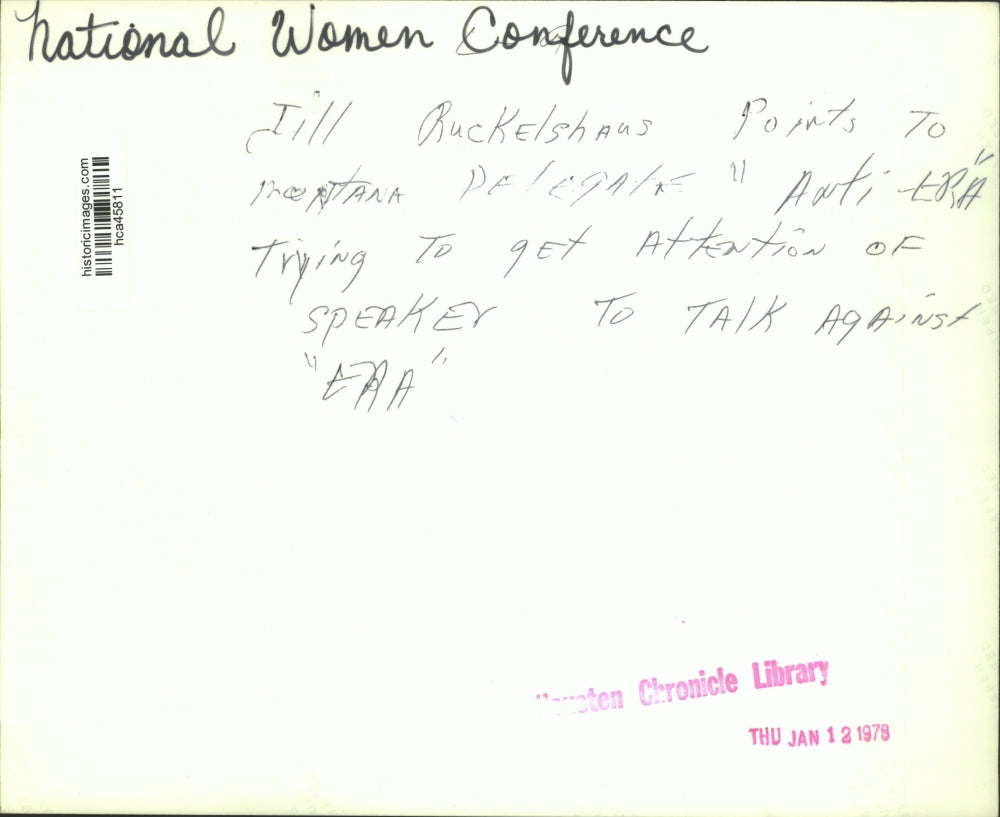 National Women Conference
Jill Ruckelshaus Points To
Montana Delegate "Anti ERA"
Trying To get Attention of
SPEAKEr To TAlK AgAinst
"ERA"
historicimages.com
hca45811
Houston Chronicle Library
THU JAN 12 1978